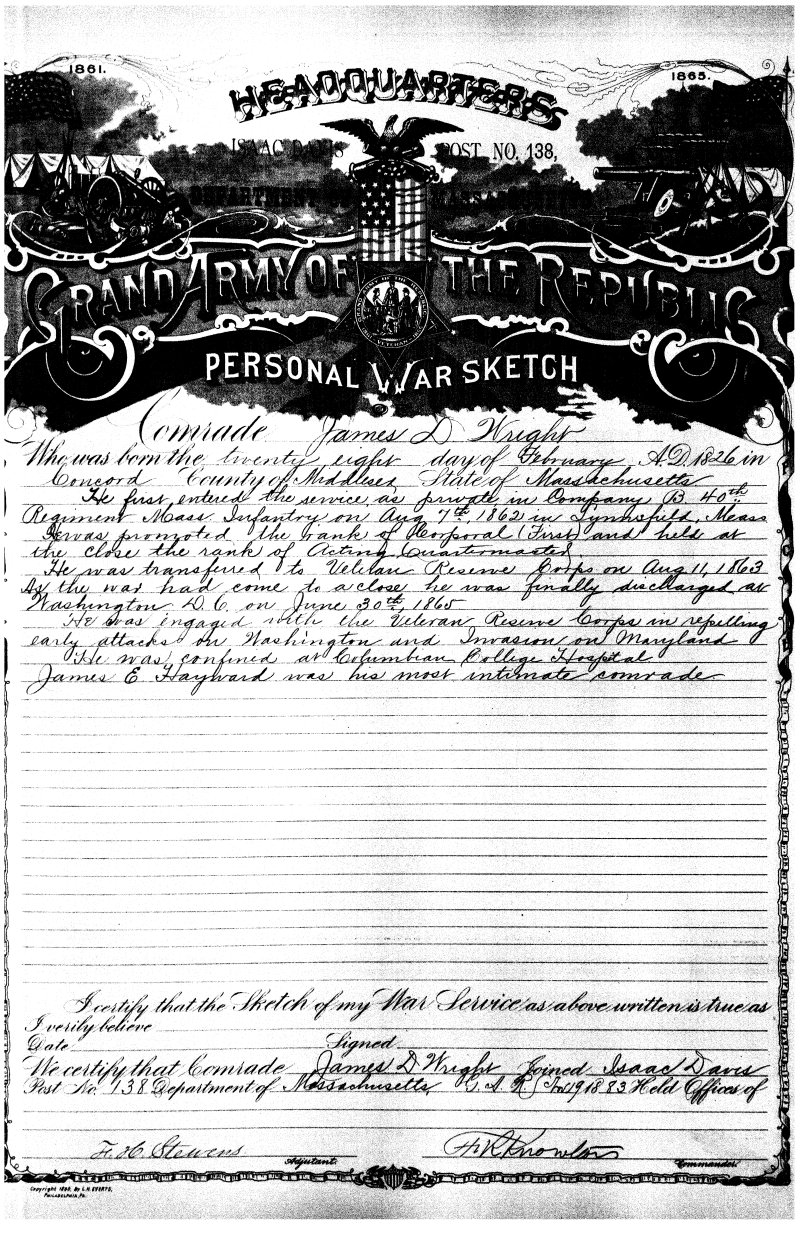 1861.
1865.
HEADQUARTERS
ISAAC DAVIS POST NO. 138,
DEPARTMENT OF MASSACHUSETTS
GRAND ARMY OF THE REPUBLIC
VETERAN
PERSONAL WAR SKETCH
Comrade James D Wright
Who was born the twenty eight day of February A.D. 1826 in
Concord County of Middlesex State of Massachusetts
He first entered the service as private in Company B 40th
Regiment Mass. Infantry on Aug 7th 1862 in Lynnsfield, Mass
He was promoted the rank of Corporal (First) and held at
the close the rank of Acting Quartermaster
He was transferred to Veteran Reserve Corps on Aug 11, 1863
As the war had come to a close he was finally discharged at
Washington D.C. on June 30th, 1865
He was ingaged with the Veteran Reserve Corps in repelling
early attacks on Washington and Invasion on Maryland
He was confined at Columbian College Hospital
James E. Hayward was his most intimate comrade
I certify that the Sketch of my War Service as above written is true as
I verily believe
Date Signed
We certify that Comrade James D Wright Joined Isaac Davis
Post No. 138 Department of Massachusetts G.A.R. 1883 Held Offices of
F. H. Stevens
Adjutant.
Knowlton
Commander.
Copyright By L. H. EVERTS,
PHILADELPHIA, PA.